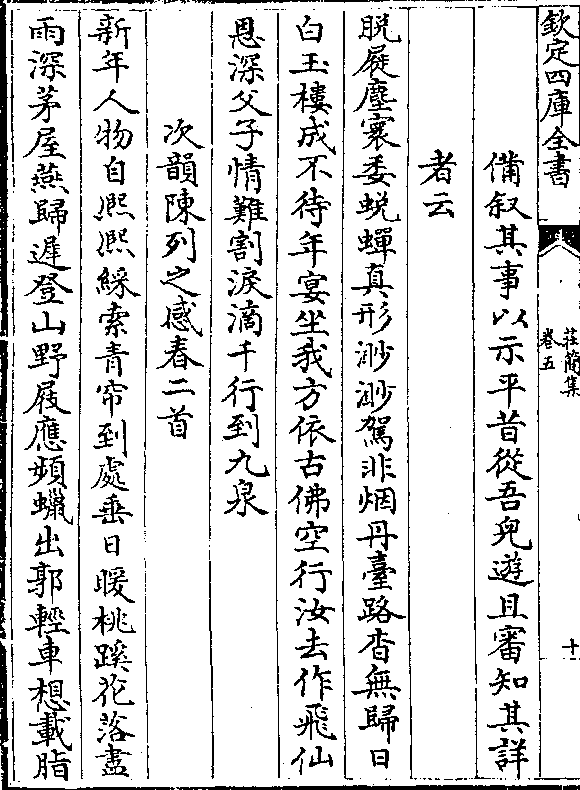 欽定四庫全書
莊簡集
卷五
十
備叙其事以示平昔從吾兒遊且審知其詳
者云
脱屣塵寰委蜕蟬真形渺渺駕非烟丹臺路杳無歸日
白玉樓成不待年宴坐我方依古佛空行汝去作飛仙
恩深父子情難割淚滴千行到九泉
次韻陳列之感春二首
新年人物自熈熈綵索青帘到處垂日暖桃蹊花落盡
雨深茅屋燕歸遲登山野屐應頻蠟出郭輕車想載脂